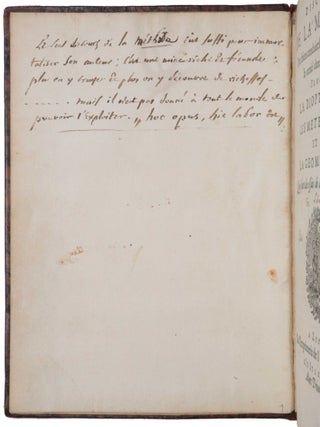 Le seul discours de la méthode eut suffi pour immor-
taliser son auteur; c'est une mine riche et féconde:
plus on y creuse et plus on y découvre de richesses.
....... mais il n'est pas donné à tout le monde de
pouvoir l'exploiter. „ hoc opus, hic labor est „
DE LA M
LA DIOPT
LES METE
ET
LA GEOM